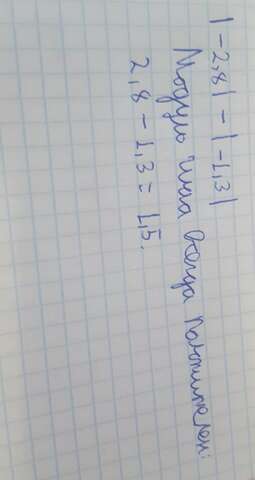 |-2,8| - |-1,3|
Модуль числа всегда положителен:
2,8 - 1,3 = 1,5.